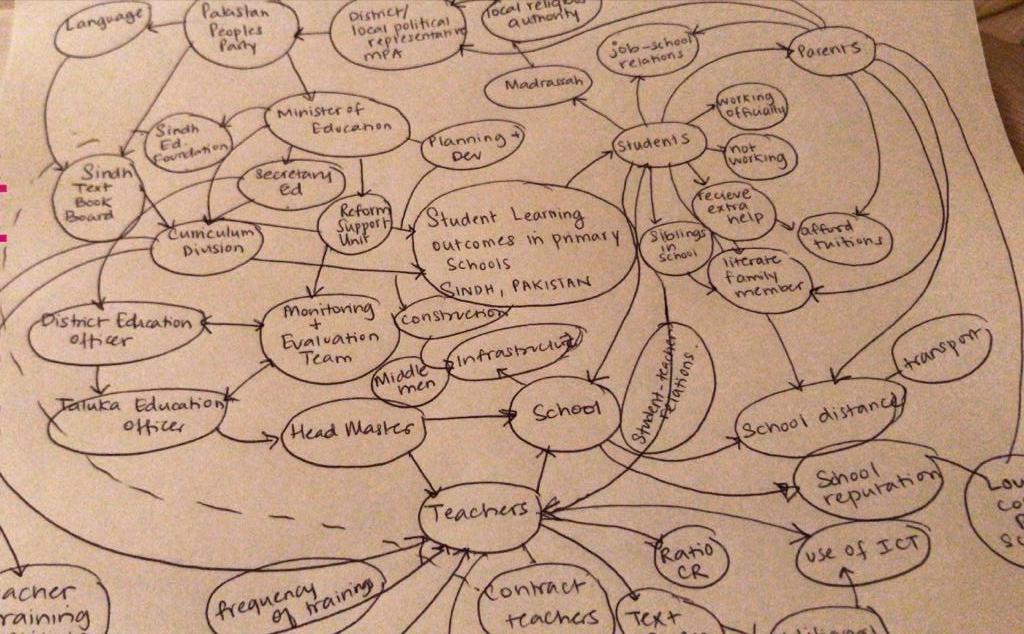 Language
Pakistan
Peoples
Party
District/
local political
representative
MPA
local religious
authority
job-school
relations
Parents
Madrassah
working
officially
Students
not
working
Sindh
Ed.
Foundation
Minister of
Education
Planning +
Dev
Secretary
Ed
Sindh
Text
Book
Board
Reform
Support
Unit
Curriculum
Division
Student Learning
outcomes in primary
Schools
SINDH, PAKISTAN
recieve
extra
help
Siblings
in
School
afford
tuitions
literate
family
member
District Education
officer
Monitoring
+
Evaluation
Team
construction
Middle
men
Infrastructure
Student-teacher
Relations.
transport
Taluka Education
officer
Head Master
School
School distance
School
reputation
Teachers
use of ICT
Ratio
CR
frequency
of training
Contract
teachers
Text